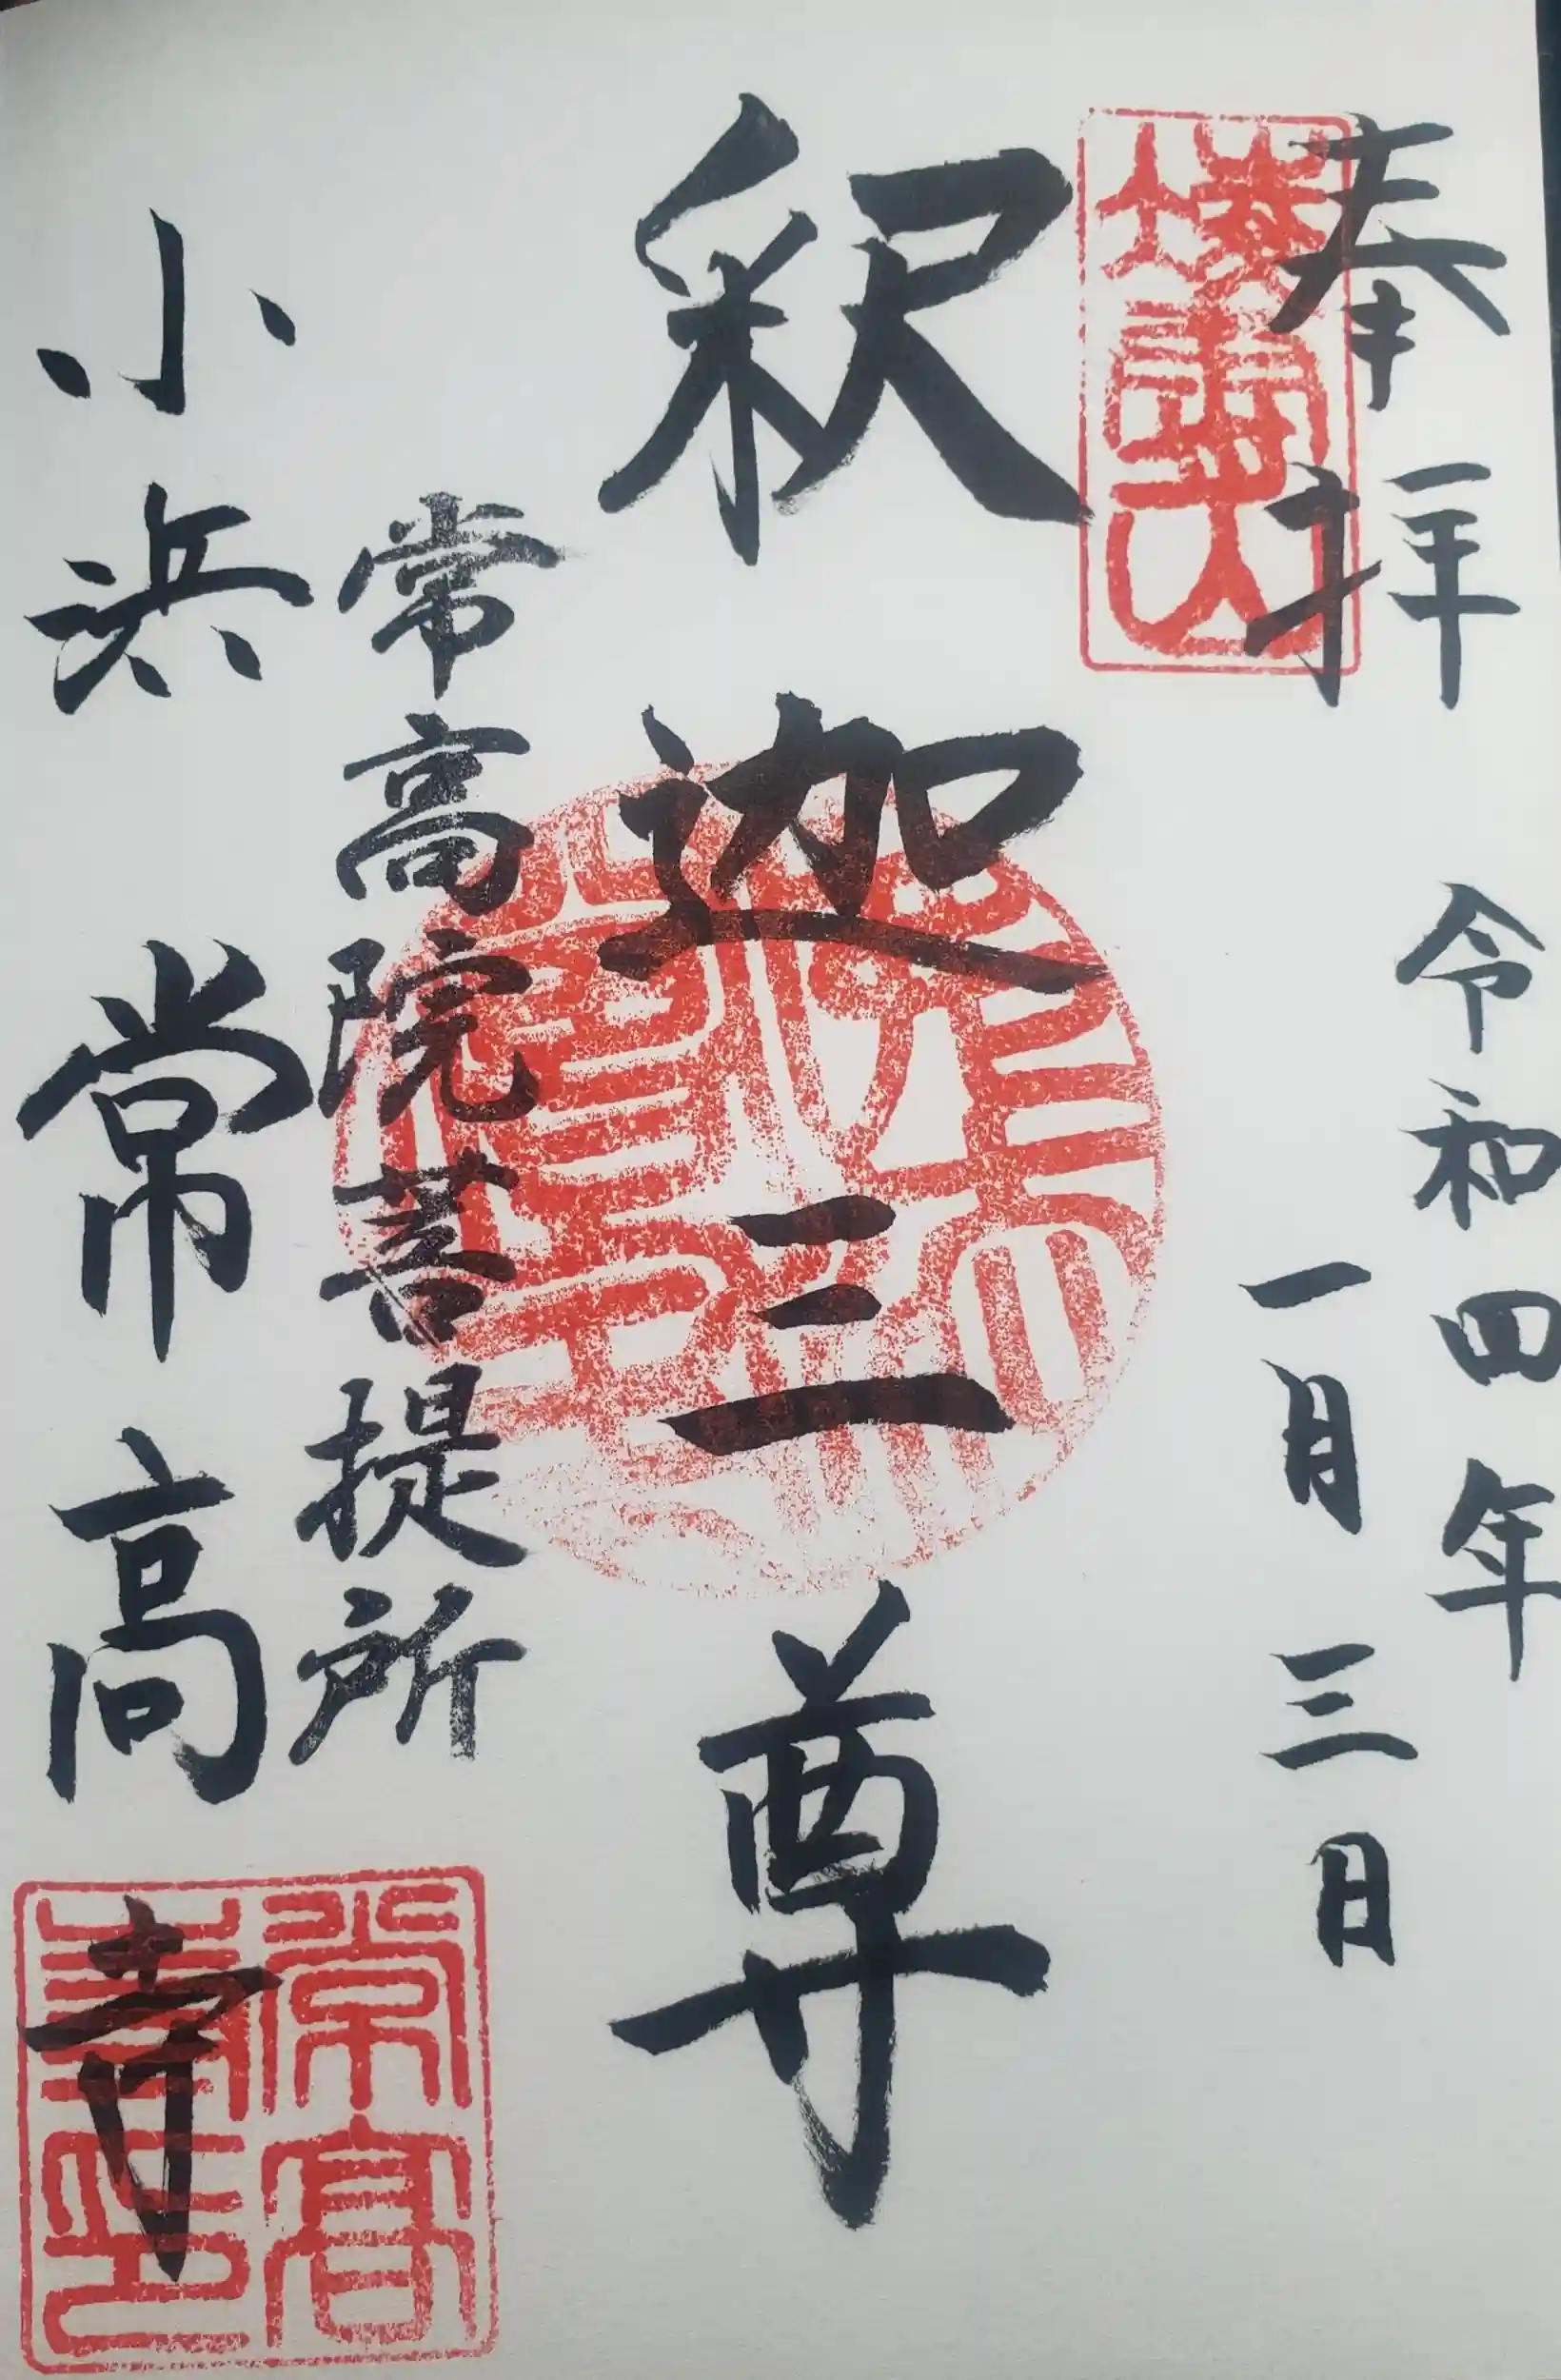 奉拝
令和四年
一月三日
釈迦三尊
常高院菩提所
小浜 常高寺
常高
寺印